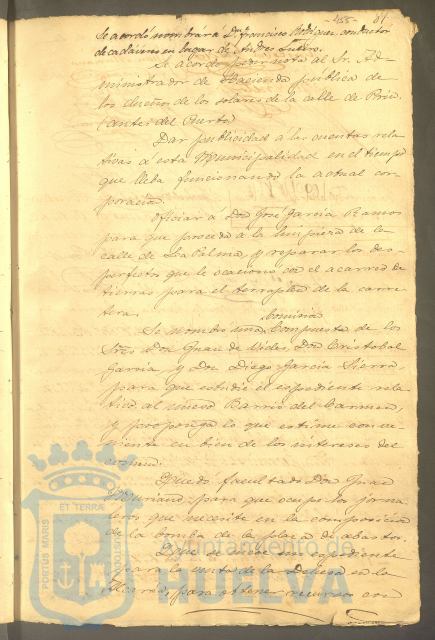 -455- 81
Se acordó nombrar a Dn. Francisco Rodríguez, conductor
de cadáveres en lugar de Andres
Se acordó pedir nota al Sr. Ad-
ministrador de Hacienda publica de
los dueños de los solares de la calle de
(antes del Puerto)
Dar publicidad a las cuentas rela-
tivas á esta Municipalidad en el tiempo
que lleba funcionando la actual cor-
poracion.
Oficiar a Don José Garcia Ramos
para que proceda a la limpieza de la
calle de La Palma, y reparar los des-
perfectos que le ocasiono con el acarreo de
tierras para el terraplen de la carre-
tera.
Comision
Se nombró una compuesta de los
Sres Don Juan de Vides, Don Cristobal
Garcia, y Don Diego Garcia Sierra,
para que estudie el espediente rela-
tivo al nuevo Barrio del Carmen,
y proponga lo que estime conve-
niente en bien de los intereses del
comun.
Quedó facultado Don Juan
Muriano para que ocupe los jorna-
leros que necesite en la composicion
de la bomba de la plaza de abastos.
Que se active el espediente
para la venta de la Dehesa de la
Alcaria, para obtener recursos con
PORTUS MARIS ET TERRÆ CUSTODIA
Ayuntamiento de
HUELVA